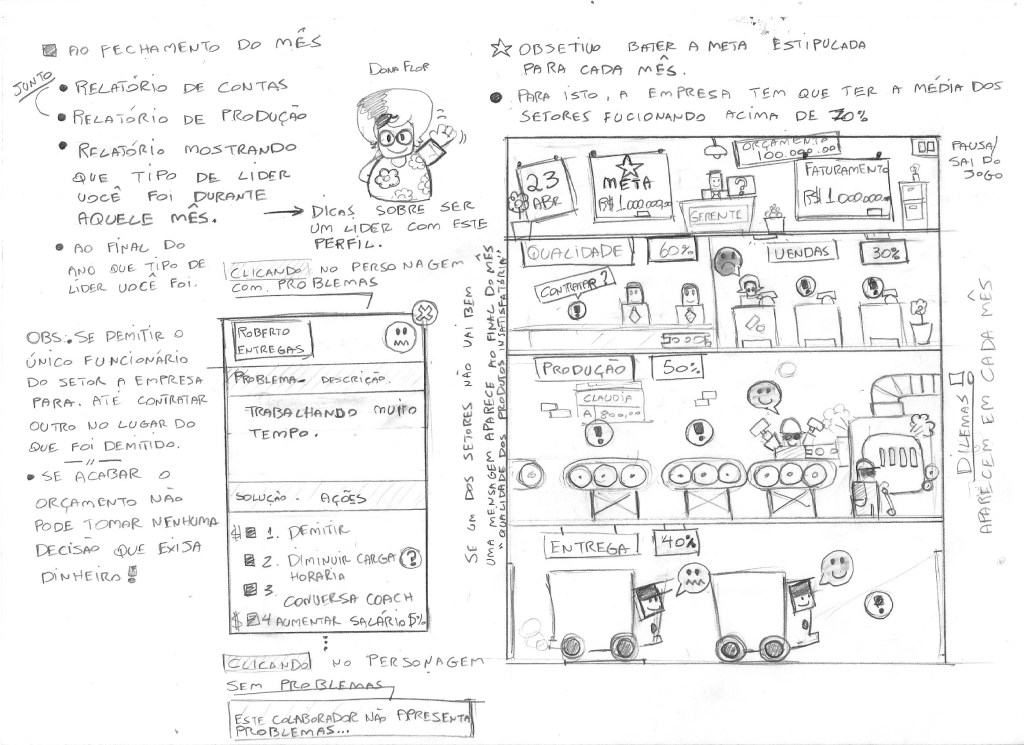 AO FECHAMENTO DO MÊS
JUNTO
RELATÓRIO DE CONTAS
RELATÓRIO DE PRODUÇÃO
RELATÓRIO MOSTRANDO
QUE TIPO DE LIDER
VOCÊ FOI DURANTE
AQUELE MÊS.
DICAS SOBRE SER
UM LIDER COM ESTE
PERFIL.
AO FINAL DO
ANO QUE TIPO DE
LIDER VOCÊ FOI.
DONA FLOR
OBS: SE DEMITIR O
ÚNICO FUNCIONÁRIO
DO SETOR A EMPRESA
PARA. ATÉ CONTRATAR
OUTRO NO LUGAR DO
QUE FOI DEMITIDO.
SE ACABAR O
ORÇAMENTO NÃO
PODE TOMAR NENHUMA
DECISÃO QUE EXIJA
DINHEIRO!
CLICANDO NO PERSONAGEM
COM PROBLEMAS
ROBERTO
ENTREGAS
X
PROBLEMA - DESCRIÇÃO.
TRABALHANDO MUITO
TEMPO.
SOLUÇÃO - AÇÕES
$ 1. DEMITIR
2. DIMINUIR CARGA
HORARIA
?
3. CONVERSA COACH
$ 4 AUMENTAR SALÁRIO 5%
CLICANDO NO PERSONAGEM
SEM PROBLEMAS
ESTE COLABORADOR NÃO APRESENTA
PROBLEMAS...
SE UM DOS SETORES NÃO VAI BEM
UMA MENSAGEM APARECE AO FINAL DO MÊS
"QUALIDADE DOS PRODUTOS INSATISFATÓRIA"
OBSETIVO BATER A META ESTIPULADA
PARA CADA MÊS.
PARA ISTO, A EMPRESA TEM QUE TER A MÉDIA DOS
SETORES FUCIONANDO ACIMA DE 70%
PAUSA/
SAI DO
JOGO
23
ABR
META
R$ 1.000.000,00
?
GERENTE
ORÇAMENTO
100.000,00
FATURAMENTO
R$ 1.000.000,00
QUALIDADE 60%
CONTRATAR?
!
VENDAS 30%
!
!
PRODUÇÃO 50%
CLAUDIA
A 800,00
!
!
ENTREGA 40%
!
DILEMAS
APARECEM EM CADA MÊS